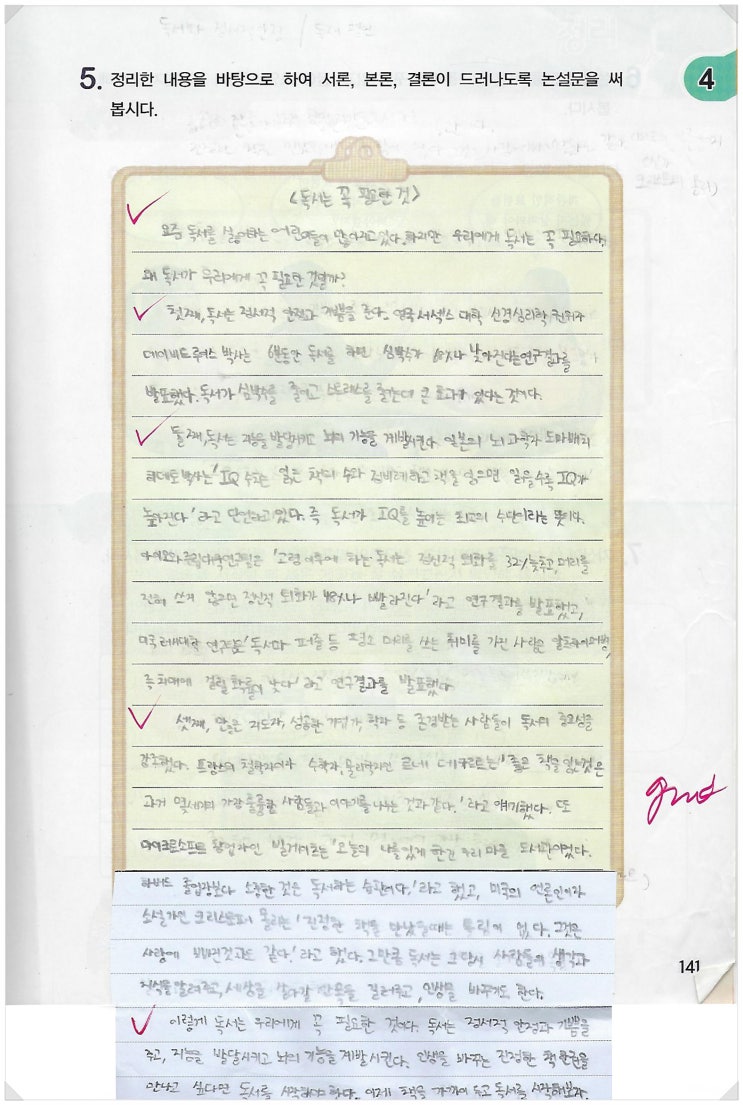 5. 정리한 내용을 바탕으로 하여 서론, 본론, 결론이 드러나도록 논설문을 써
봅시다.
4
<독서는 꼭 필요한 것>
요즘 독서를 싫어하는 어린이들이 많아지고있다. 하지만 우리에게 독서는 꼭 필요하다.
왜 독서가 우리에게 꼭 필요한 것일까?
첫째, 독서는 정서적 안정과 기쁨을 준다. 영국 서섹스 대학 신경심리학 권위자
데이비드루이스 박사는 6분동안 독서를 하면 심박수가 68%나 낮아진다는연구결과를
발표했다. 독서가 심박수를 줄이고 스트레스를 줄이는데 큰 효과가 있다는 것이다.
둘째, 독서는 지능을 발달시키고 뇌의 기능을 계발시킨다. 일본의 뇌 과학자 도마베치
히데토 박사는 'IQ 수치는 읽은 책의 수와 정비례하고 책을 읽으면 읽을수록 IQ가
높아진다'라고 단언하고있다. 즉 독서가 IQ를 높이는 최고의 수단이라는 뜻이다.
연구팀은 '고령 이후에 하는 독서는 정신적 퇴화를 32% 늦추고, 머리를
전혀 쓰지 않으면 정신적 퇴화가 48%나 빨라진다'라고 연구결과를 발표했고,
미국 연구팀은 '독서나 퍼즐 등 평소 머리를 쓰는 취미를 가진 사람은
즉 치매에 걸릴 확률이 낮다'라고 연구결과를 발표했다
셋째, 많은 지도자, 성공한 기업가, 학자 등 존경받는 사람들이 독서의 중요성을
강조했다. 프랑스의 철학자이자 수학자, 물리학자인 르네 데카르트는 '좋은 책을 읽는것은
과거 몇세기의 가장 훌륭한 사람들과 이야기를 나누는 것과 같다.'라고 얘기했다. 또
마이크로소프트 창업자인 빌게이츠는 '오늘의 나를 있게 한건 우리 마을 도서관이었다.
하버드 졸업장보다 소중한 것은 독서하는 습관이다.'라고 했고, 미국의 언론인이자
소설가인 크리스토퍼 몰리는 '진정한 책을 만났을때는 틀림이 없다. 그것은
사랑에 빠진것과도 같다.'라고 했다. 그만큼 독서는 그 당시 사람들의 생각과
지식을 알려주고, 세상을 살아갈 안목을 길러주고, 인생을 바꾸기도 한다.
이렇게 독서는 우리에게 꼭 필요한 것이다. 독서는 정서적 안정과 기쁨을
주고, 지능을 발달시키고 뇌의 기능을 계발시킨다. 인생을 바꾸는 진정한 책 한권을
만나고 싶다면 독서를 시작해야 한다. 이제 책을 가까이 두고 독서를 시작해보자.
good
141